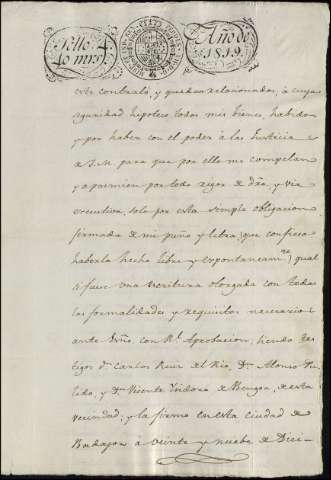 Sello 4º
40 mrs
Año de
1819.
este contrato, y quedan relacionados, a cuya
seguridad hipoteco todos mis bienes, habidos
y por haber con el poder à las Justicia
de S.M. para que por ello me compelan
y apremien por todo rigor de dro, y via
executiva, solo por esta simple obligacion
firmada de mi puño y letra, (que confieso
haberla hecho libre y expontaneamte) qual
si fuese una escritura otorgada con todas
las formalidades y requisitos necesarios
ante Esno, con Rl. Aprobacion; siendo tes-
tigos Dn. Carlos Ruiz del Rio, Dn. Alonso
y Dn. Vicente Ysidoro de de esta
vecindad; y la firmo en esta ciudad de
Badajoz à veinte y nueve de Dici-